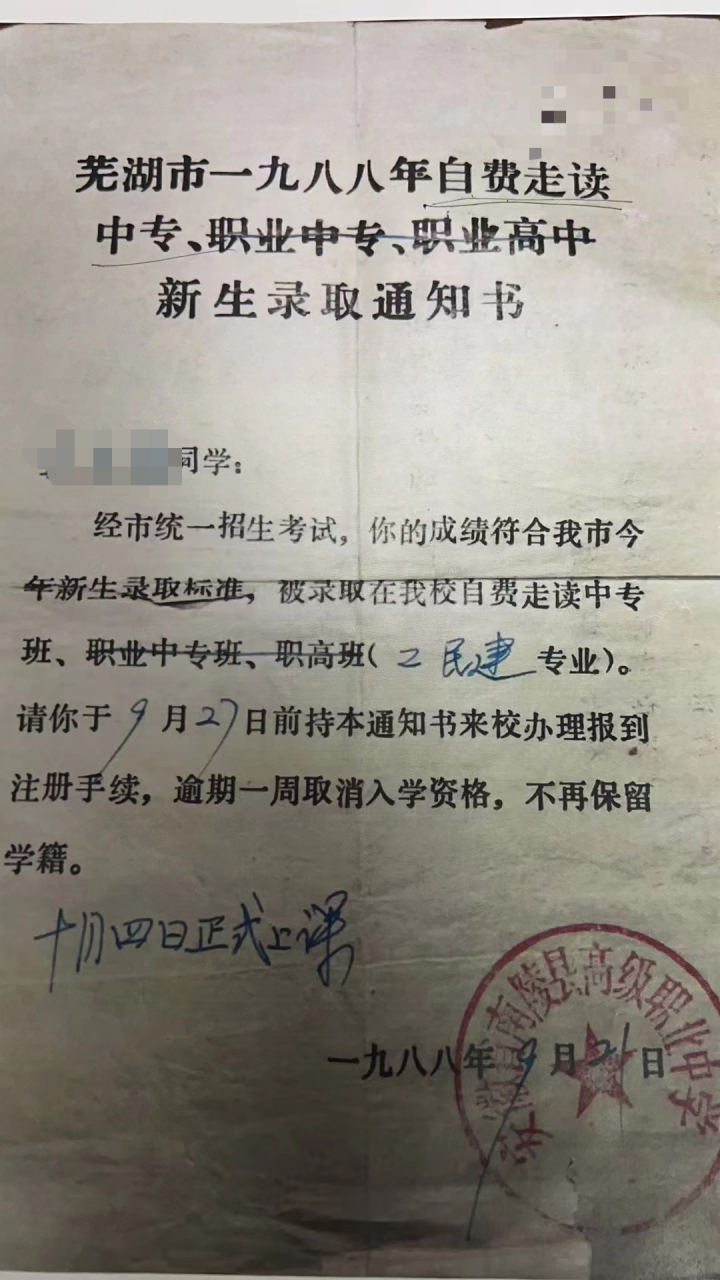 芜湖市一九八八年自费走读
中专、职业中专、职业高中
新生录取通知书
同学：
经市统一招生考试，你的成绩符合我市今
年新生录取标准，被录取在我校自费走读中专
班、职业中专班、职高班（工民建专业）。
请你于9月27日前持本通知书来校办理报到
注册手续，逾期一周取消入学资格，不再保留
学籍。
十月四日正式上课
一九八八年9月21日
安徽省南陵县高级职业中学